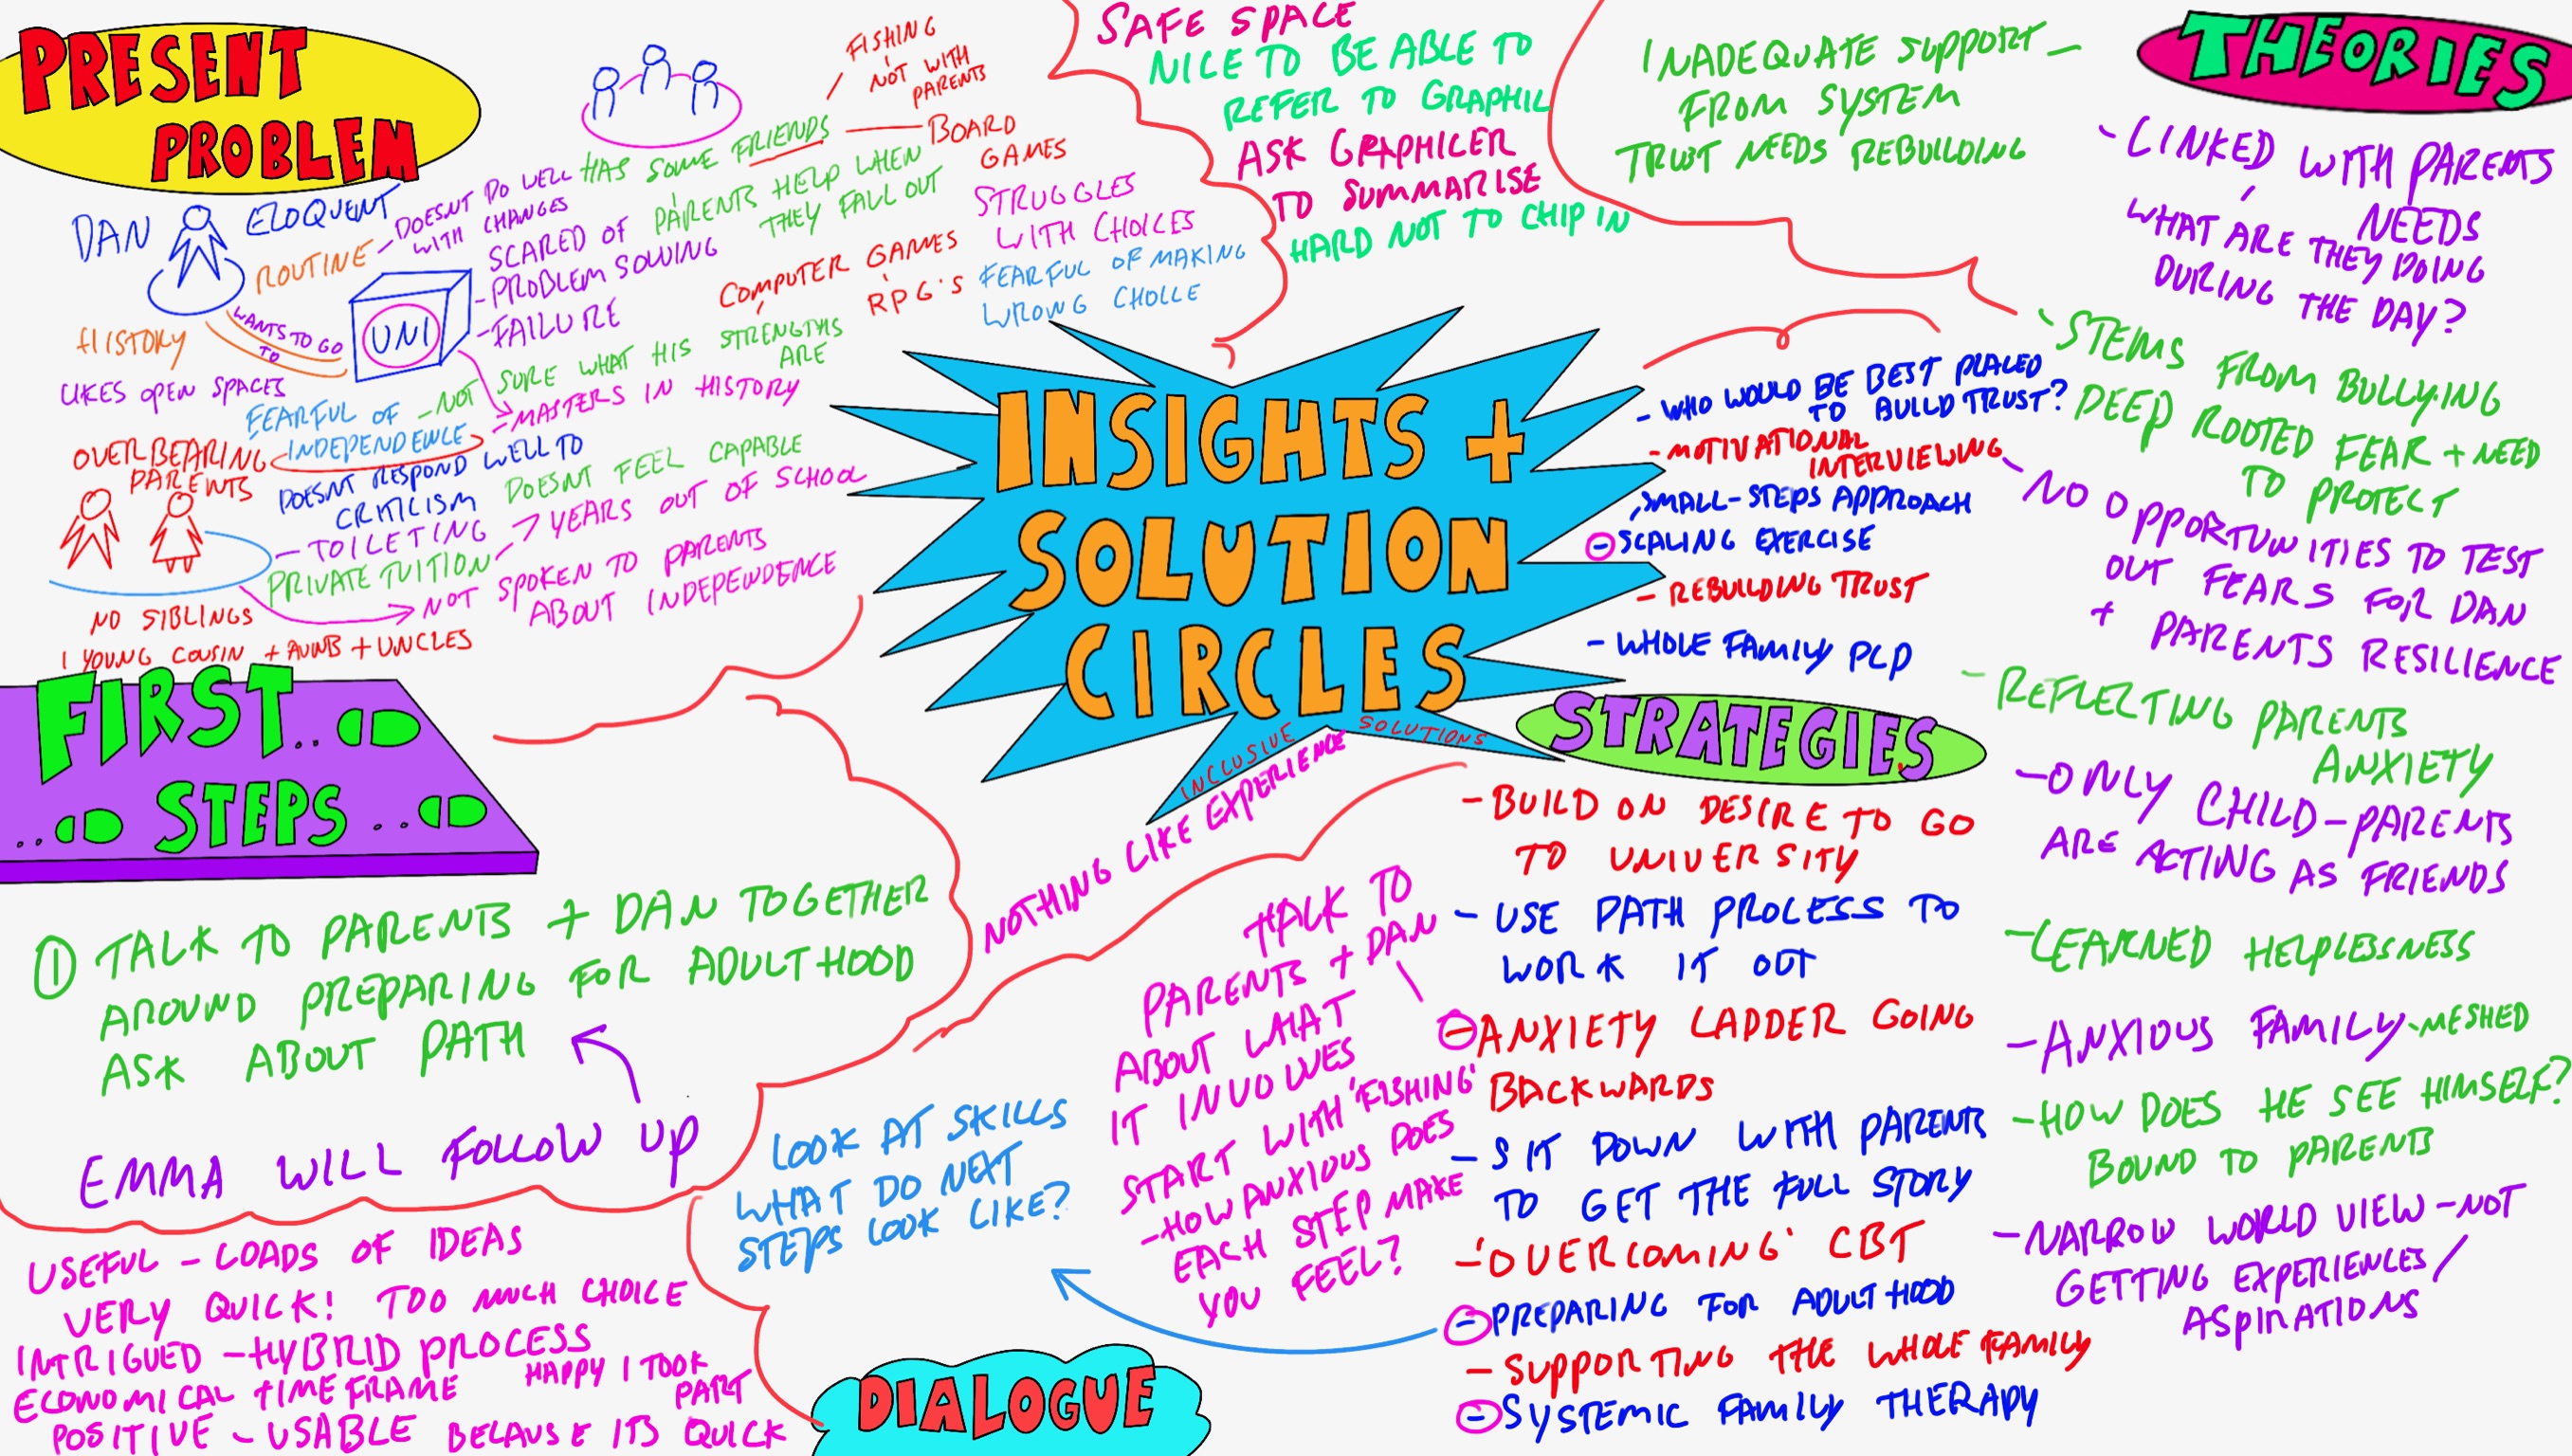 PRESENT
PROBLEM
DAN
ELOQUENT
ROUTINE
- DOESNT DO WELL
WITH CHANGES
HAS SOME FRIENDS
FISHING
NOT WITH
PARENTS
BOARD
GAMES
PARENTS HELP WHEN
THEY FALL OUT
SCARED OF
- PROBLEM SOLVING
- FAILURE
COMPUTER GAMES
RPG'S
STRUGGLES
WITH CHOICES
FEARFUL OF MAKING
WRONG CHOICE
HISTORY
WANTS TO GO
TO
UNI
LIKES OPEN SPACES
FEARFUL OF
INDEPENDENCE
- NOT SURE WHAT HIS STRENGTHS
ARE
= MASTERS IN HISTORY
OVERBEARING
PARENTS
DOESNT RESPOND WELL TO
CRITICISM
DOESNT FEEL CAPABLE
- TOILETING
PRIVATE TUITION
- 7 YEARS OUT OF SCHOOL
NOT SPOKEN TO PARENTS
ABOUT INDEPENDENCE
NO SIBLINGS
1 YOUNG COUSIN + AUNTS + UNCLES
SAFE SPACE
NICE TO BE ABLE TO
REFER TO GRAPHIC
ASK GRAPHICER
TO SUMMARISE
HARD NOT TO CHIP IN
INSIGHTS +
SOLUTION
CIRCLES
INCLUSIVE SOLUTIONS
NOTHING LIKE EXPERIENCE
THEORIES
INADEQUATE SUPPORT -
FROM SYSTEM
TRUST NEEDS REBUILDING
- LINKED WITH PARENTS
NEEDS
WHAT ARE THEY DOING
DURING THE DAY?
- STEMS FROM BULLYING
DEEP ROOTED FEAR + NEED
TO PROTECT
- NO OPPORTUNITIES TO TEST
OUT FEARS FOR DAN
+ PARENTS RESILIENCE
- REFLECTING PARENTS
ANXIETY
- ONLY CHILD - PARENTS
ARE ACTING AS FRIENDS
- LEARNED HELPLESSNESS
- ANXIOUS FAMILY - MESHED
- HOW DOES HE SEE HIMSELF?
BOUND TO PARENTS
- NARROW WORLD VIEW - NOT
GETTING EXPERIENCES /
ASPIRATIONS
- WHO WOULD BE BEST PLACED
TO BUILD TRUST?
- MOTIVATIONAL
INTERVIEWING
- SMALL-STEPS APPROACH
- SCALING EXERCISE
- REBUILDING TRUST
- WHOLE FAMILY PCP
STRATEGIES
- BUILD ON DESIRE TO GO
TO UNIVERSITY
- USE PATH PROCESS TO
WORK IT OUT
- ANXIETY LADDER GOING
BACKWARDS
- SIT DOWN WITH PARENTS
TO GET THE FULL STORY
- 'OVERCOMING' CBT
- PREPARING FOR ADULTHOOD
- SUPPORTING THE WHOLE FAMILY
- SYSTEMIC FAMILY THERAPY
TALK TO
PARENTS + DAN
ABOUT WHAT
IT INVOLVES
START WITH 'FISHING'
- HOW ANXIOUS DOES
EACH STEP MAKE
YOU FEEL?
LOOK AT SKILLS
WHAT DO NEXT
STEPS LOOK LIKE?
FIRST
STEPS
1 TALK TO PARENTS + DAN TOGETHER
AROUND PREPARING FOR ADULTHOOD
ASK ABOUT PATH
EMMA WILL FOLLOW UP
DIALOGUE
USEFUL - LOADS OF IDEAS
VERY QUICK! TOO MUCH CHOICE
INTRIGUED - HYBRID PROCESS
ECONOMICAL TIMEFRAME
HAPPY I TOOK
PART
POSITIVE - USABLE BECAUSE ITS QUICK